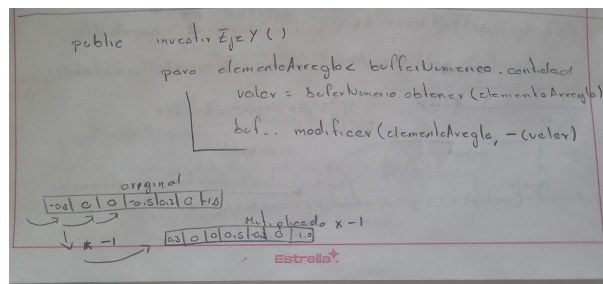 public invertir EjeY ()
para elementoArreglo < bufferNumerico.cantidad
valor = buferNumerio.obtener (elementoArreglo)
buf.. modificar (elementoAreglo, -(valor)
original
0 | 0
Multiplicado x -1
* -1
0.3 | 0 | 0 | 0.5 | -0.2 | 0 | 1.0
Estrella